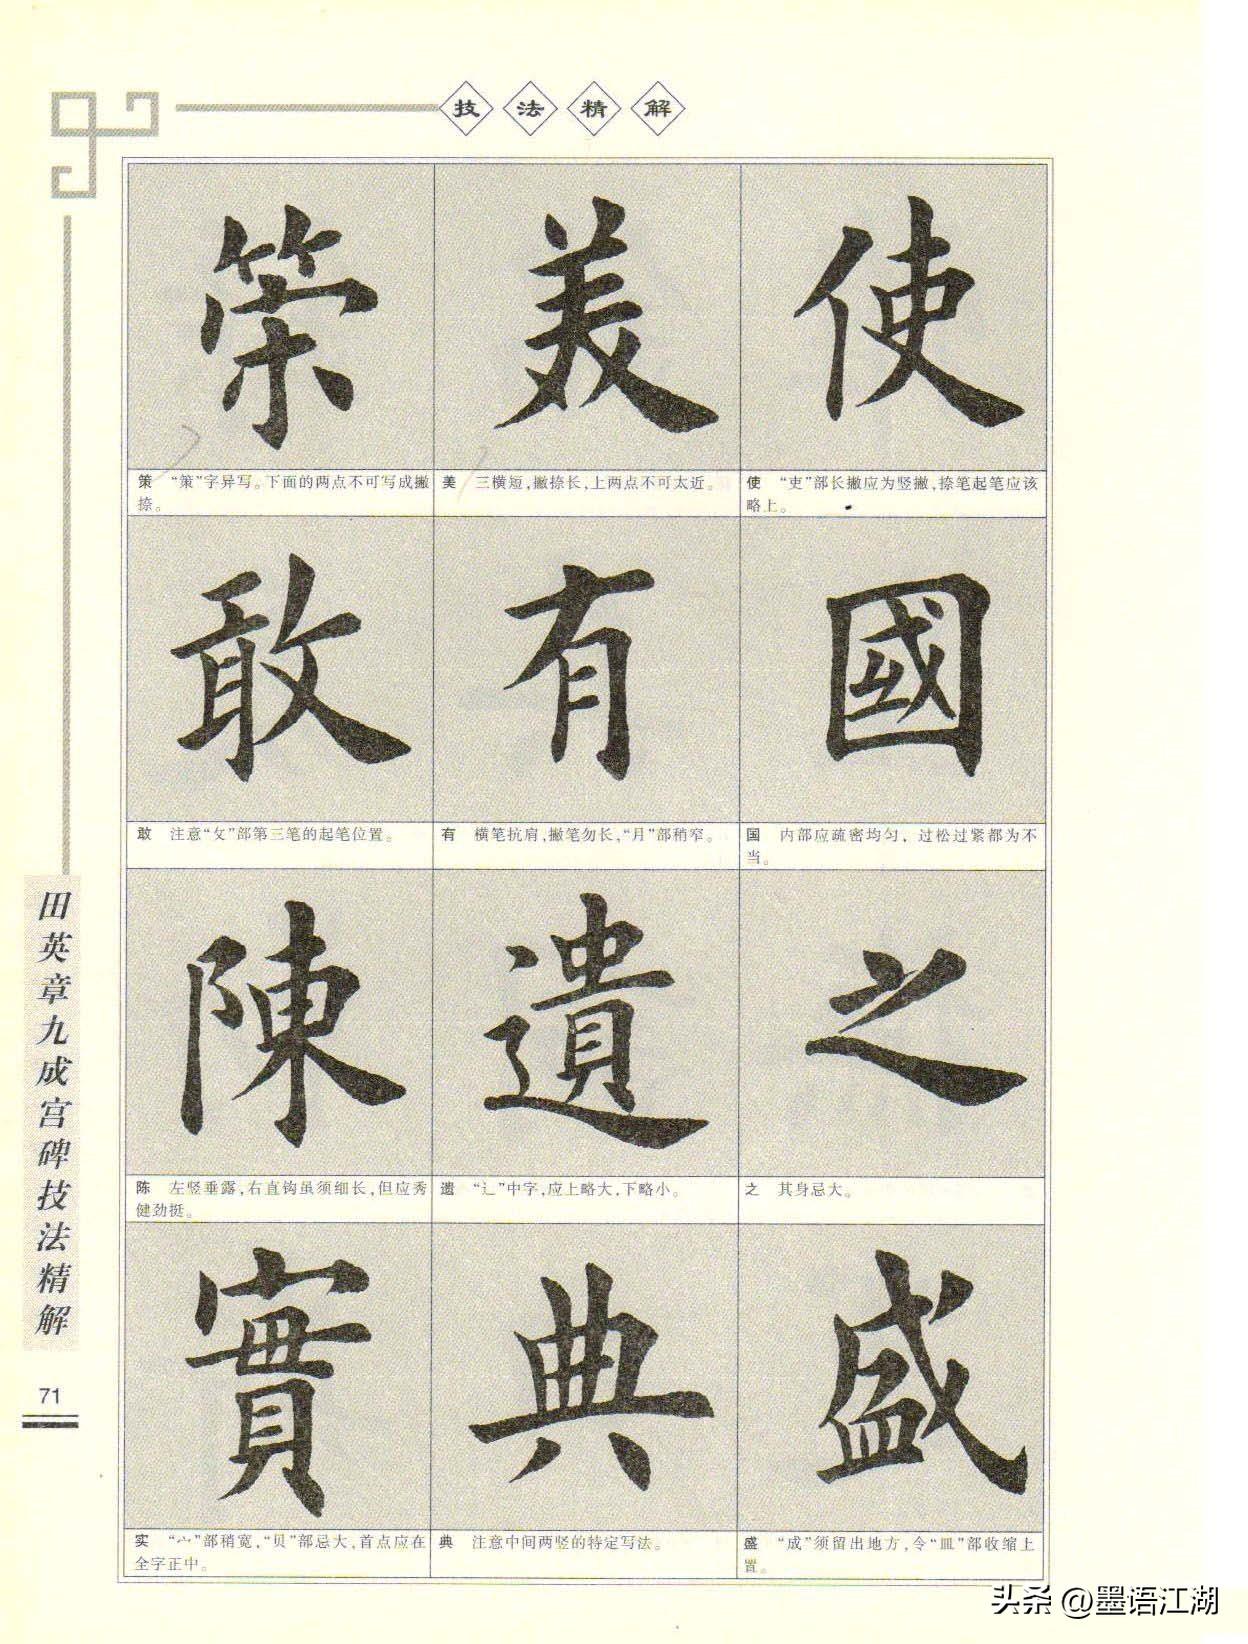 技法精解
策 美 使
策 “策”字异写。下面的两点不可写成撇
捺。
美 三横短,撇捺长,上两点不可太近。
使 “吏”部长撇应为竖撇,捺笔起笔应该
略上。
敢 有 國
敢 注意“攵”部第三笔的起笔位置。
有 横笔抗肩,撇笔勿长,“月”部稍窄。
国 内部应疏密均匀，过松过紧都为不
当。
陳 遺 之
陈 左竖垂露,右直钩虽须细长,但应秀
健劲挺。
遗 “辶”中字,应上略大,下略小。
之 其身忌大。
實 典 盛
实 “宀”部稍宽,“贝”部忌大,首点应在
全字正中。
典 注意中间两竖的特定写法。
盛 “成”须留出地方,令“皿”部收缩上
置。
田英章九成宫碑技法精解
71
头条 @墨语江湖